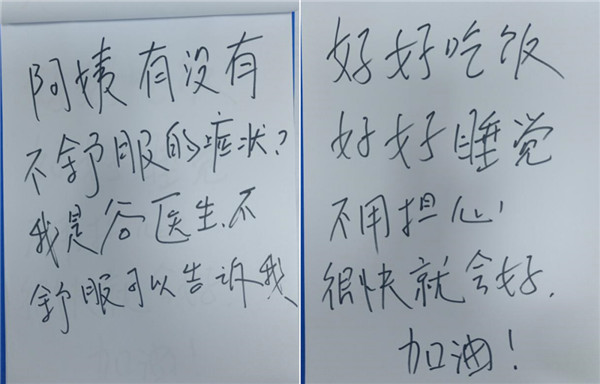 阿姨有没有
不舒服的症状?
我是谷医生,不
舒服可以告诉我
好好吃饭
好好睡觉
不用担心
很快就会好.
加油!